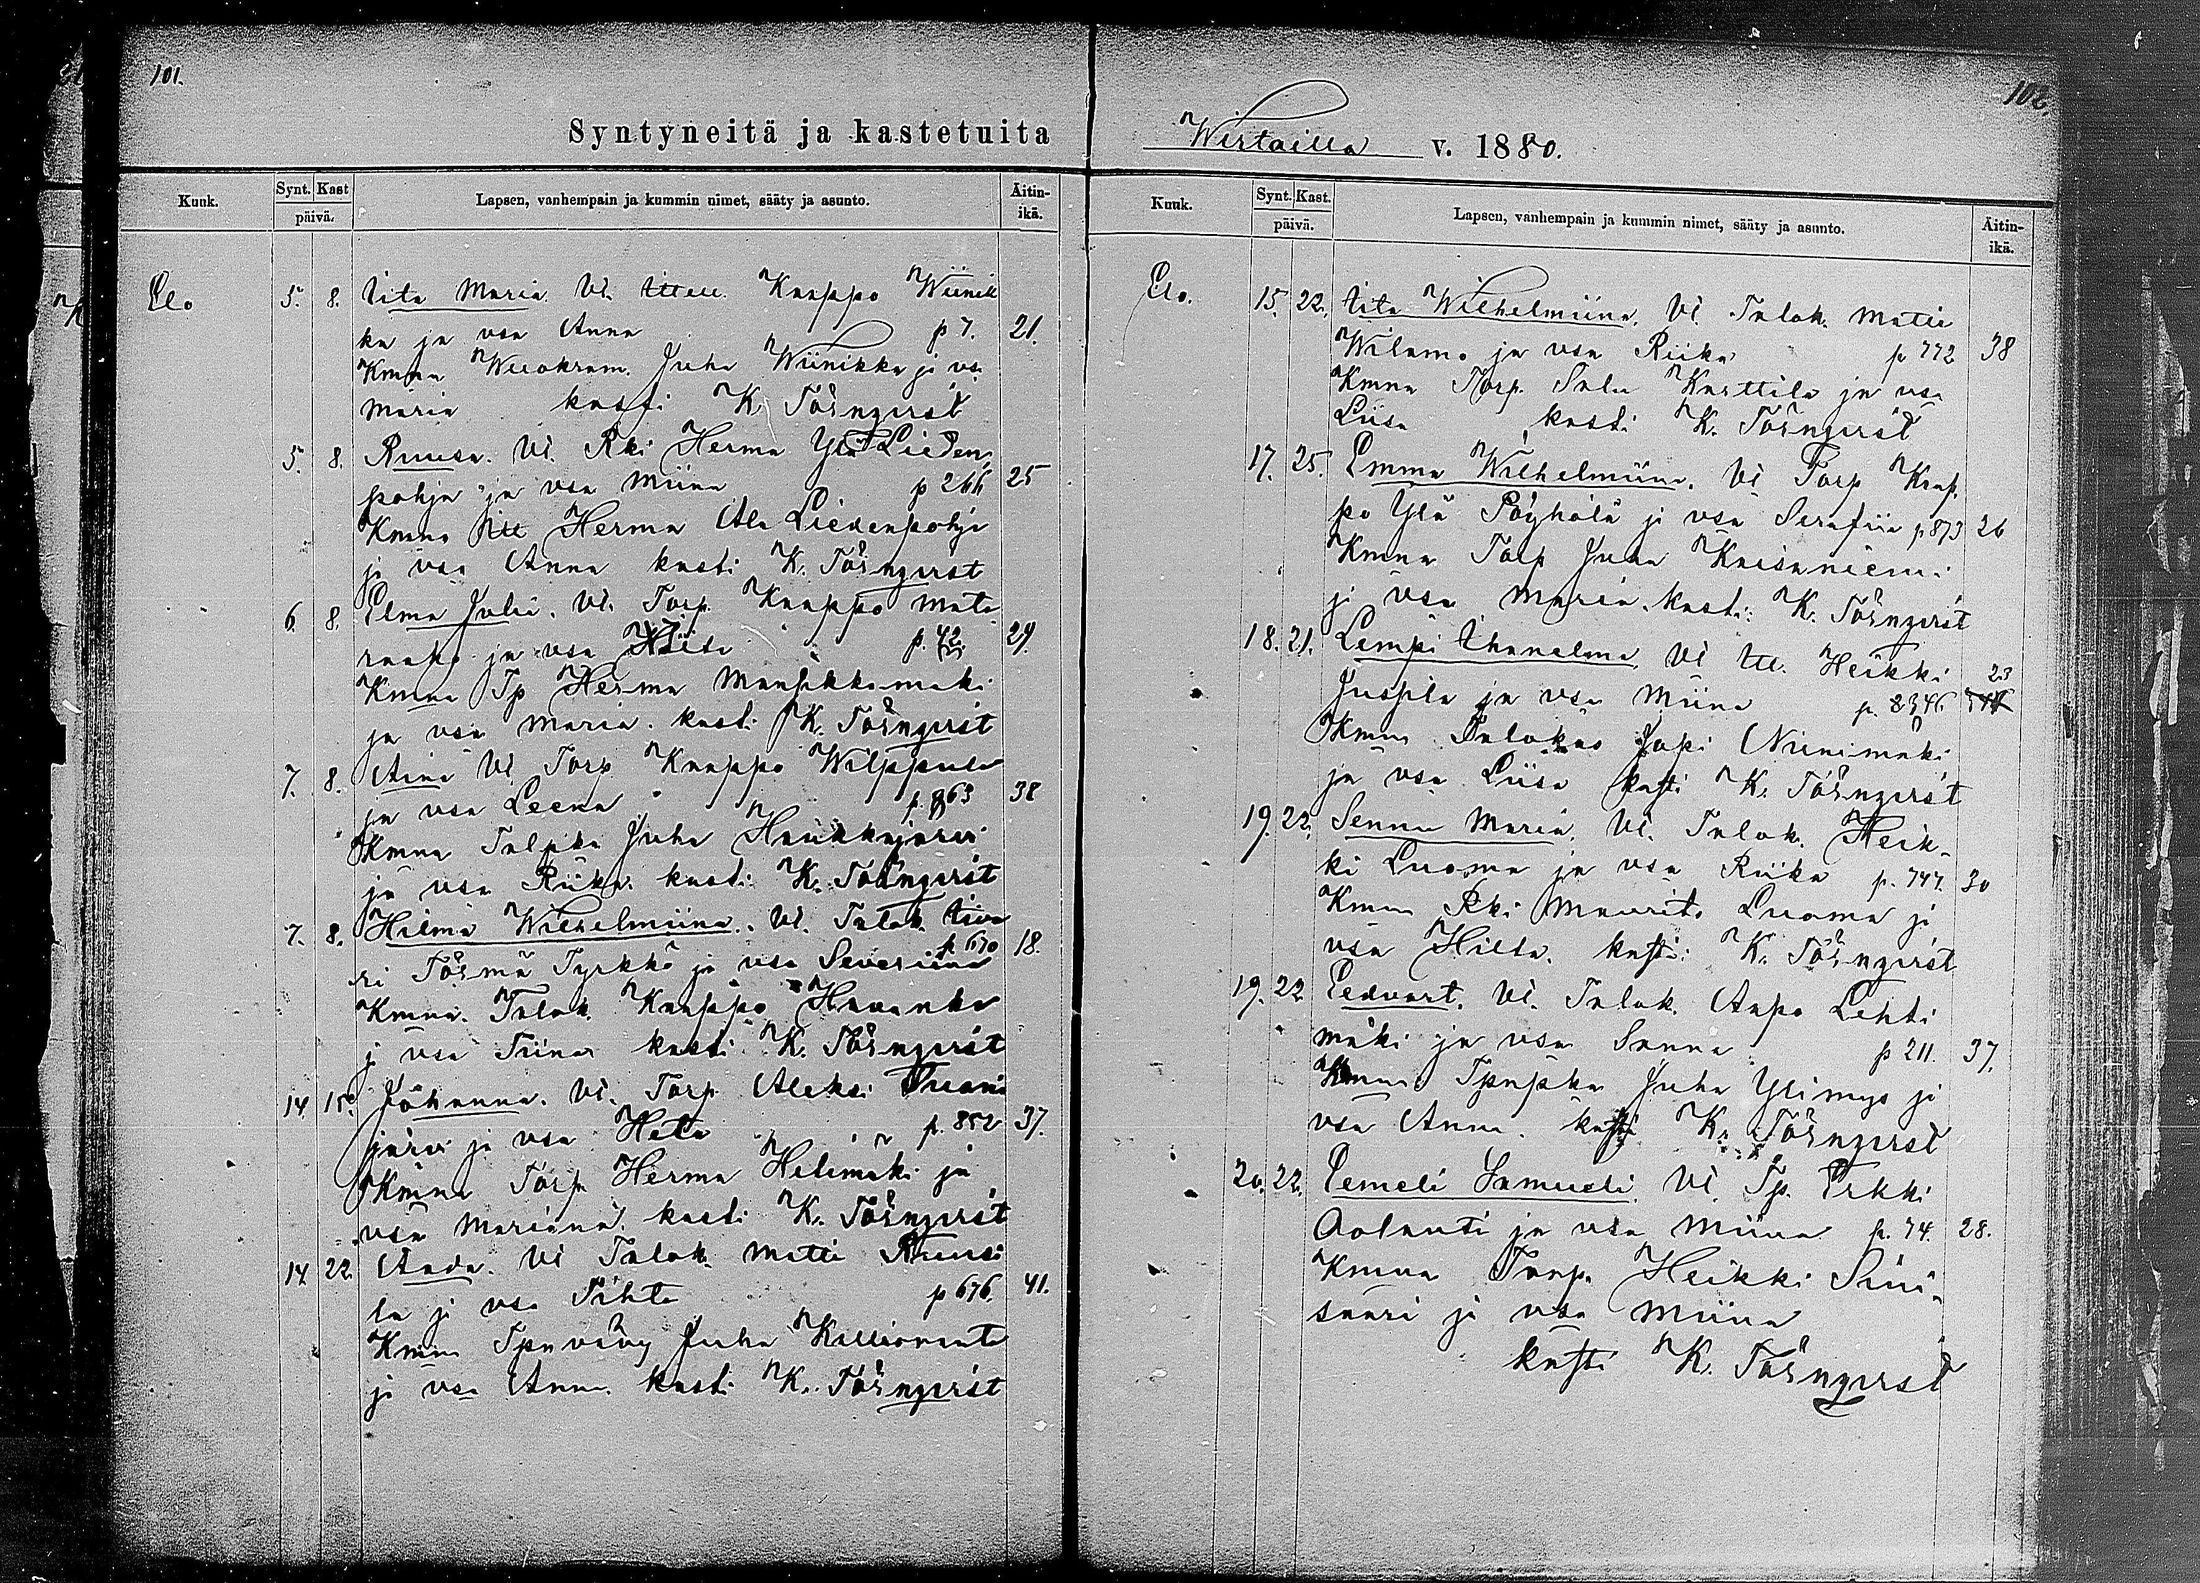 101.
Syntyneitä ja kastetuita
Kuuk.
Synt. Kast
päivä.
Lapsen, vanhempain ja kummin nimet, sääty ja asunto.
Äitin-
ikä.
Elo 5. 8. Iita Maria. Vl. Kaappo Wiinik
ka ja vsa Anna p 7. 21.
Kmna Juha Wiinikka ja vsa
Maria kasti K. Törnqvist
5. 8. Ruusa. Vl. Rki Herma Ylä Lieden
pohja ja vsa Miina p 266 25
Kmna Herma Ala Liedenpohja
ja vsa Anna kasti K. Törnqvist
6. 8. Elma Julia. Vl. Torp. Kaappo Mata
ja vsa p. 42. 29.
Kmna Tp Herma Mansikkamäki
ja vsa Maria. kasti K. Törnqvist
7. 8. Aina Vl. Torp Kaappo Wilppula
ja vsa Leena p. 863 38
Kmna Talpka Juha Haukkajärvi
ja vsa Riika. kasti K. Törnqvist
7. 8. Hilma Wilhelmiina. Vl. Talok. Iiva
ri Törmä Tyrkkö ja vsa Severiina p 670 18.
Kmna. Talok. Kaappo Havanka
ja vsa Tiina kasti K. Törnqvist
14 15. Johanna. Vl. Torp. Aleksi
järvi ja vsa Heta p. 852 37.
Kmna Torp. Herma Hetemäki ja
vsa Mariana. kasti K. Törnqvist
14 22 Aada. Vl Talok. Matti Ruusi
la ja vsa p 676. 41.
Kmna Tpnvävy Juha Kallioranta
ja vsa Anna. kasti K. Törnqvist
102.
Wirtailla v. 1880.
Kuuk.
Synt. Kast.
päivä.
Lapsen, vanhempain ja kummin nimet, sääty ja asunto.
Äitin-
ikä.
Elo. 15. 22. Iita Wilhelmiina. Vl. Talok. Matti
Wilamo ja vsa Riika p 772 38
Kmna Torp. Salu Karttila ja vsa
Liisa kasti K. Törnqvist
17. 25. Emma Wilhelmiina. Vl Torp Kaap.
po Ylä Pöyhölä ja vsa Serafiia p 873 26
Kmna Torp Juha Kaisaniemi
ja vsa Maria. kasti: K. Törnqvist
18. 21. Lempi Ihanelma Vl Itl. Heikki 23
Juspila ja vsa Miina p. 8346
Kmna Talokas Japi Niinimäki
ja vsa Liisa kasti K. Törnqvist
19. 22. Senna Maria. Vl. Talok. Heik-
ki Luoma ja vsa Riika p. 747. 30
Kmna Rki Mauritz Luoma ja
vsa Hilda. kasti: K. Törnqvist
19. 22 Eedvart. Vl. Talok. Aapo Lehti
mäki ja vsa Sanna p 211. 37.
Kmna Tpnpka Juha Ylimys ja
vsa Anna. kasti K. Törnqvist
20. 22. Eemeli Samueli. Vl. Tp. Erkki
Aolanti ja vsa Miina p. 74. 28.
Kmna Torp. Heikki Sini-
saari ja vsa Miina
kasti K. Törnqvist